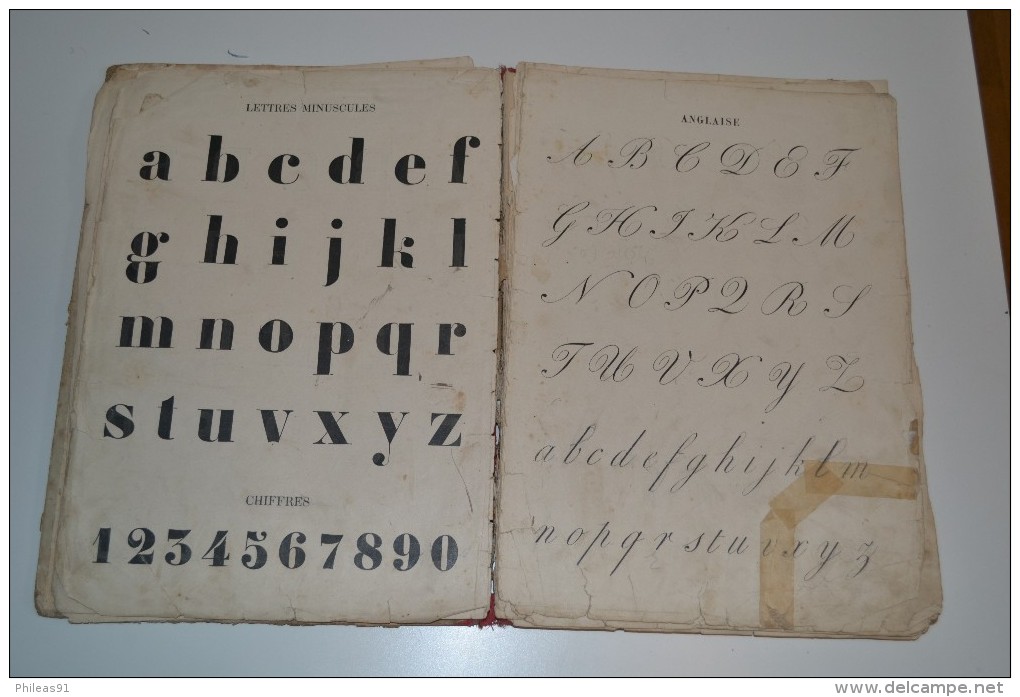 LETTRES MINUSCULES
a b c d e f
g h i j k l
m n o p q r
s t u v x y z
CHIFFRES
1 2 3 4 5 6 7 8 9 0
ANGLAISE
A B C D E F
G H I K L M
N O P Q R S
T U V X Y Z
a b c d e f g h i j k l m
n o p q r s t u v x y z
Phileas91
www.delcampe.net